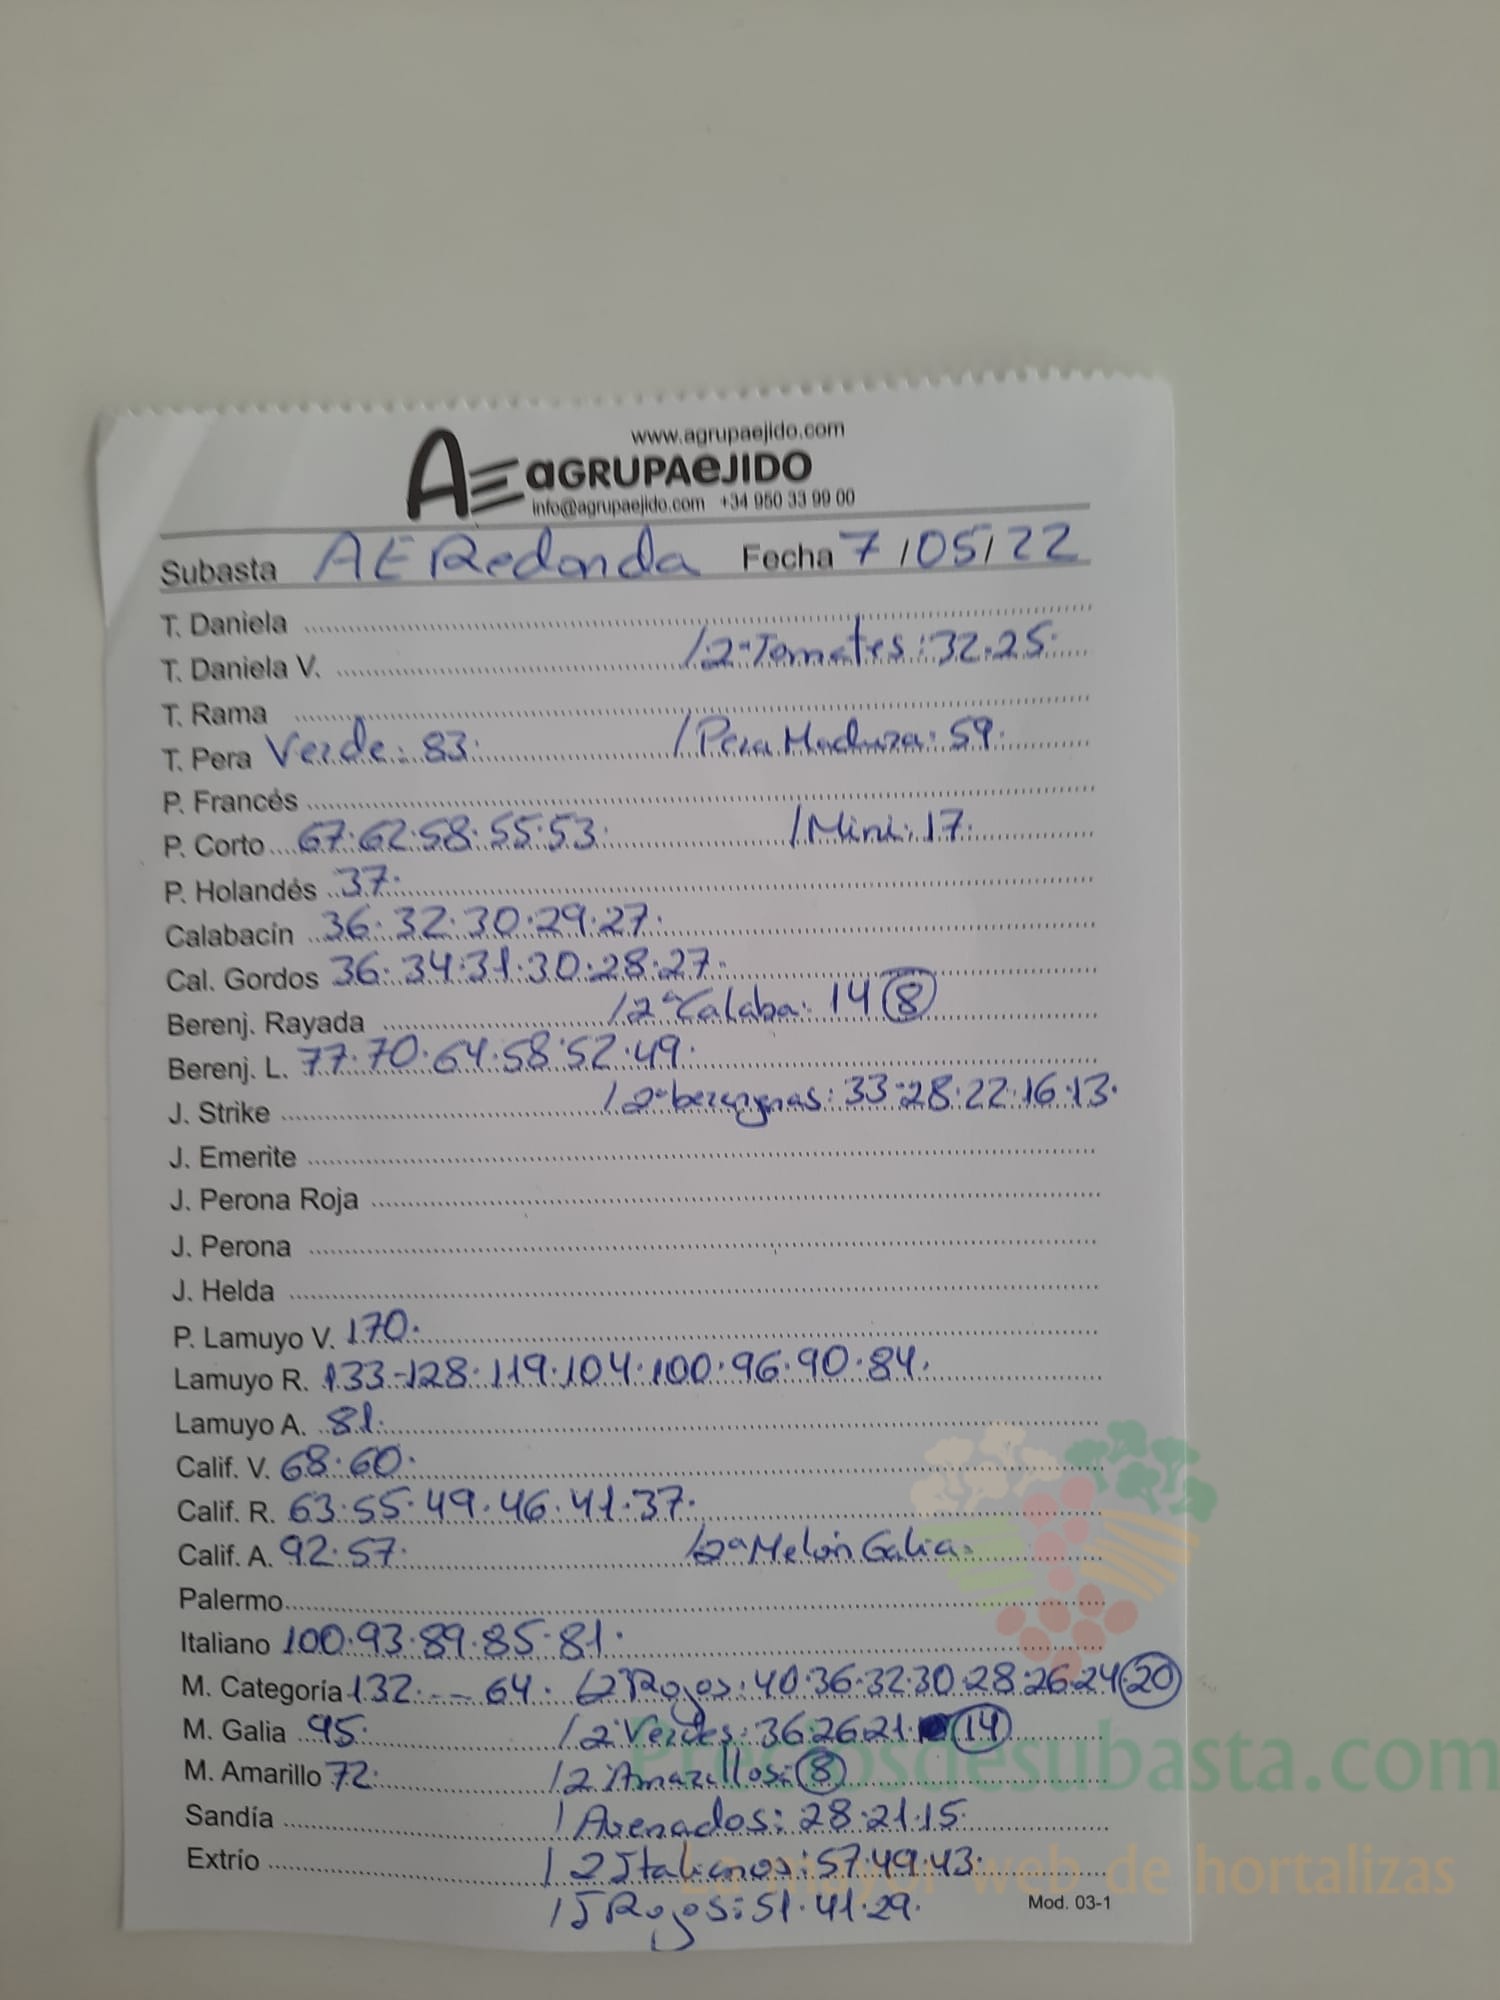 www.agrupaejido.com
AE aGRUPAeJIDO
info@agrupaejido.com +34 950 33 99 00
Subasta AE Redonda Fecha 7/05/22
T. Daniela
T. Daniela V. /2ª Tomates: 32·25·
T. Rama
T. Pera Verde: 83· /Pera Madura: 59·
P. Francés
P. Corto 67·62·58·55·53· /Mini: 17·
P. Holandés 37·
Calabacín 36·32·30·29·27·
Cal. Gordos 36·34·31·30·28·27·
Berenj. Rayada /2ª Calaba: 14 8
Berenj. L. 77·70·64·58·52·49·
J. Strike /2ª berengnas: 33·28·22·16·13·
J. Emerite
J. Perona Roja
J. Perona
J. Helda
P. Lamuyo V. 170·
Lamuyo R. 133-128·119·104·100·96·90·84·
Lamuyo A. 81·
Calif. V. 68·60·
Calif. R. 63·55·49·46·41·37·
Calif. A. 92·57· /2ª Melón Galia:
Palermo
Italiano 100·93·89·85·81·
M. Categoría 132 -- 64· /2ª Rojos: 40·36·32·30·28·26·24 20
M. Galia 95· /2 Verdes: 36·26·21· 14
M. Amarillo 72· /2 Amarillos: 8
Sandía /Asenados: 28·21·15·
Extrío /2 Italianos: 57·49·43·
/J Rojos: 51·41·29·
Mod. 03-1
Preciosdesubasta.com
La mayor web de hortalizas